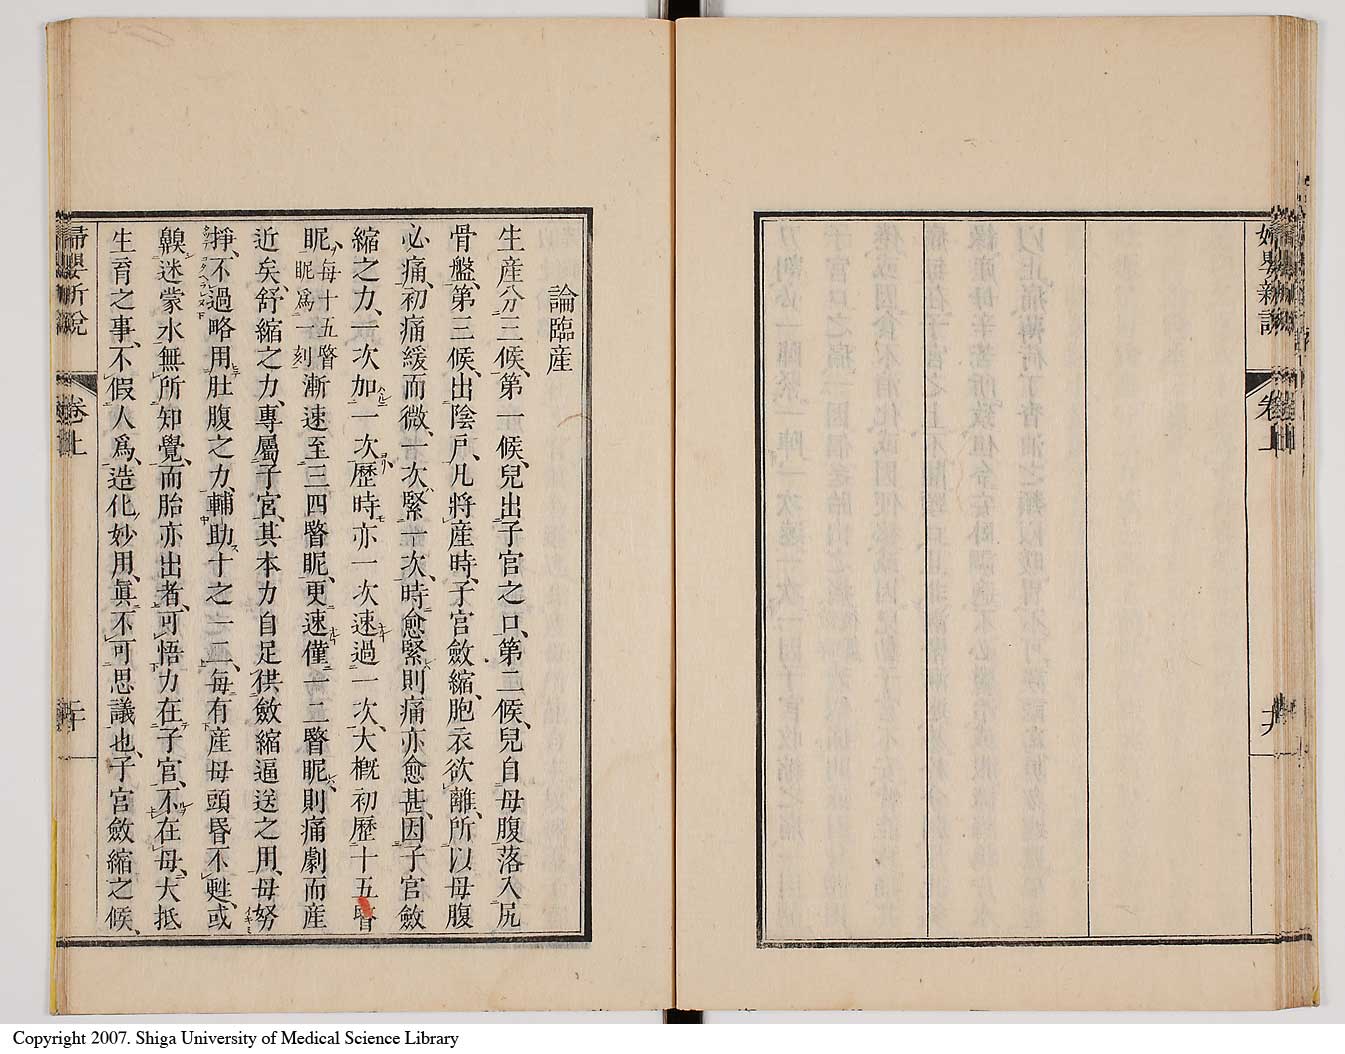 婦嬰新說
卷上
十九
論臨産
生産分三候、第一候、兒出子宮之口、第二候、兒自母腹落入尻
骨盤、第三候、出陰戶、凡將産時、子宮斂縮、胞衣欲離、所以母腹
必痛、初痛緩而微、一次緊一次、時愈緊、則痛亦愈甚、因子宮斂
縮之力、一次加一次、歷時亦一次速過一次、大槪初歷十五瞥
眤、每十五瞥眤爲一刻漸速至三四瞥眤、更速僅一二瞥眤、則痛劇而産
近矣、舒縮之力、專屬子宮、其本力自足供斂縮逼送之用、母努
掙、不過略用肚腹之力、輔助十之一二、每有産母頭昏不甦、或
迷蒙水無所知覺、而胎亦出者、可悟力在子宮、不在母、大抵
生育之事、不假人爲、造化妙用、眞不可思議也、子宮斂縮之候、
婦嬰新說
卷上
二十
Copyright 2007. Shiga University of Medical Science Library